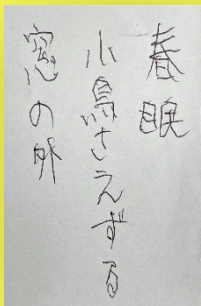 春眠
小鳥さえずる
窓の外